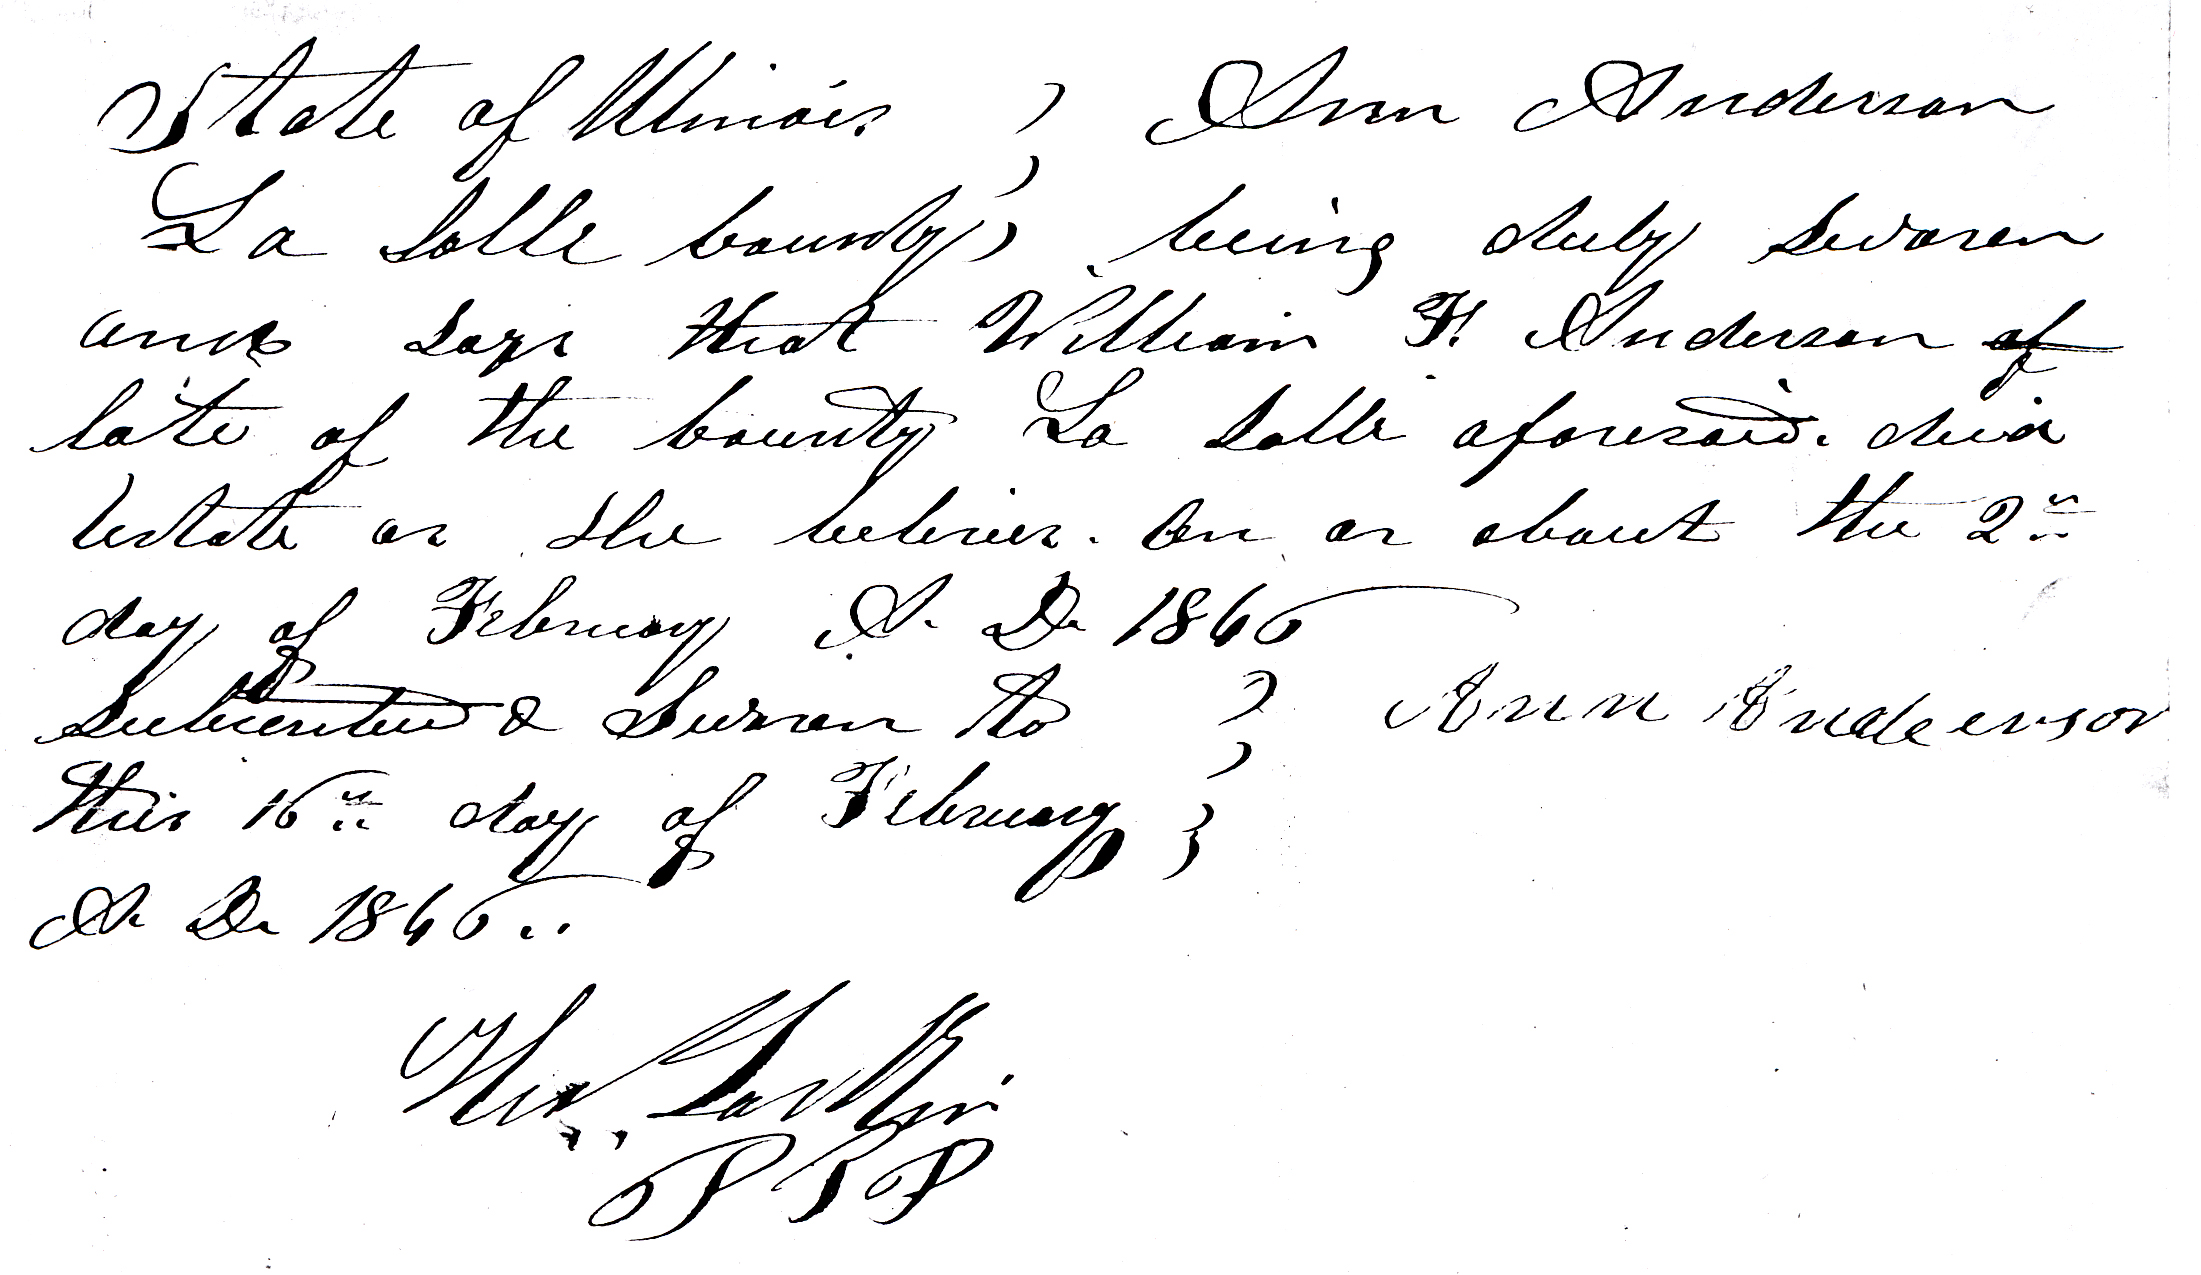 State of Illinois ) Ann Anderson
La Salle County ) being duly Sworn
and says that William F. Anderson of
late of the County La Salle aforesaid. died
testate as She believes. On or about the 2nd
day of February A. D. 1866
Subscribed & Sworn to ) Ann Anderson
this 16th day of February )
A. D. 1866..
Thos. Larkin